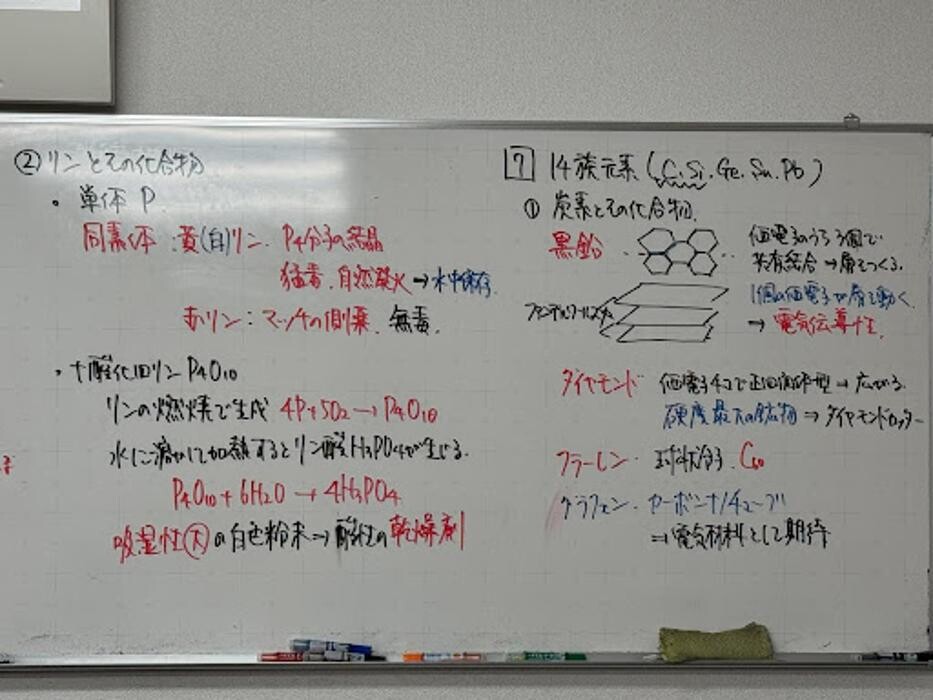 ②リンとその化合物
・単体 P
同素体：黄(白)リン. P4分子の結晶
猛毒. 自然発火→水中保存.
赤リン：マッチの側薬. 無毒.
・十酸化四リン P4O10
リンの燃焼で生成 4P+5O2→P4O10
水に溶かして加熱するとリン酸H3PO4が生じる.
P4O10+6H2O→4H3PO4
吸湿性(大)の白色粉末⇒酸性の乾燥剤
7 14族元素(C.Si.Ge.Sn.Pb)
① 炭素とその化合物.
黒鉛
価電子のうち3個で
共有結合→層をつくる.
1個の価電子が層を動く.
→電気伝導性.
ファンデルワールス力
ダイヤモンド 価電子4コで正四面体型→広がる.
硬度最大の鉱物⇒ダイヤモンドカッター
フラーレン・球状分子. C60
グラフェン・カーボンナノチューブ
⇒電気材料として期待